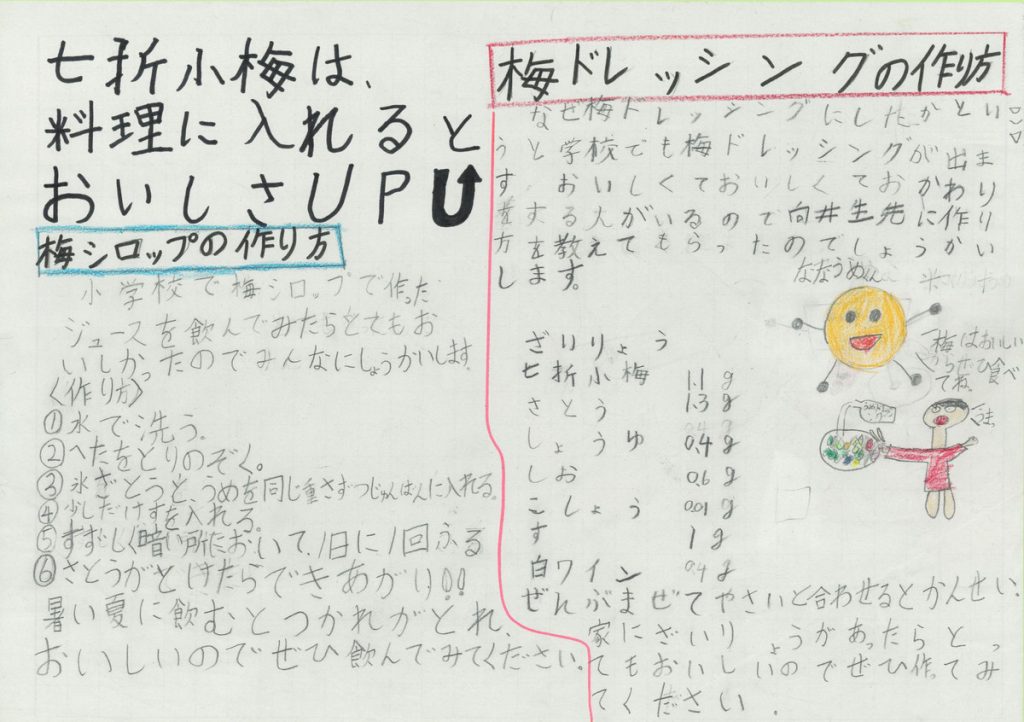 七折小梅は、
料理に入れると
おいしさUP
梅シロップの作り方
小学校で梅シロップで作った
ジュースを飲んでみたらとてもお
いしかったのでみんなにしょうかいします。
〈作り方〉
①水で洗う。
②へたをとりのぞく。
③氷ざとうと、うめを同じ重さずつじゅんばんに入れる。
④少しだけすを入れる。
⑤すずしく暗い所において、1日に1回ふる
⑥さとうがとけたらできあがり!!
暑い夏に飲むとつかれがとれ、
おいしいのでぜひ飲んでみてください。
梅ドレッシングの作り方
なぜ梅ドレッシングにしたかとい
うと学校でも梅ドレッシングが出ま
す。おいしくておいしくておかわり
をする人がいるので向井先生に作り
方を教えてもらったのでしょうかい
します。
ななうめん
梅はおいしい
からぜひ食べ
てね。
うま
ざいりょう
七折小梅 1.1g
さとう 1.3g
しょうゆ 0.4g
しお 0.6g
こしょう 0.01g
す 1g
白ワイン 0.4g
ぜんぶまぜてやさいと合わせるとかんせい。
家にざいりょうがあったらとっ
てもおいしいのでぜひ作ってみ
てください.